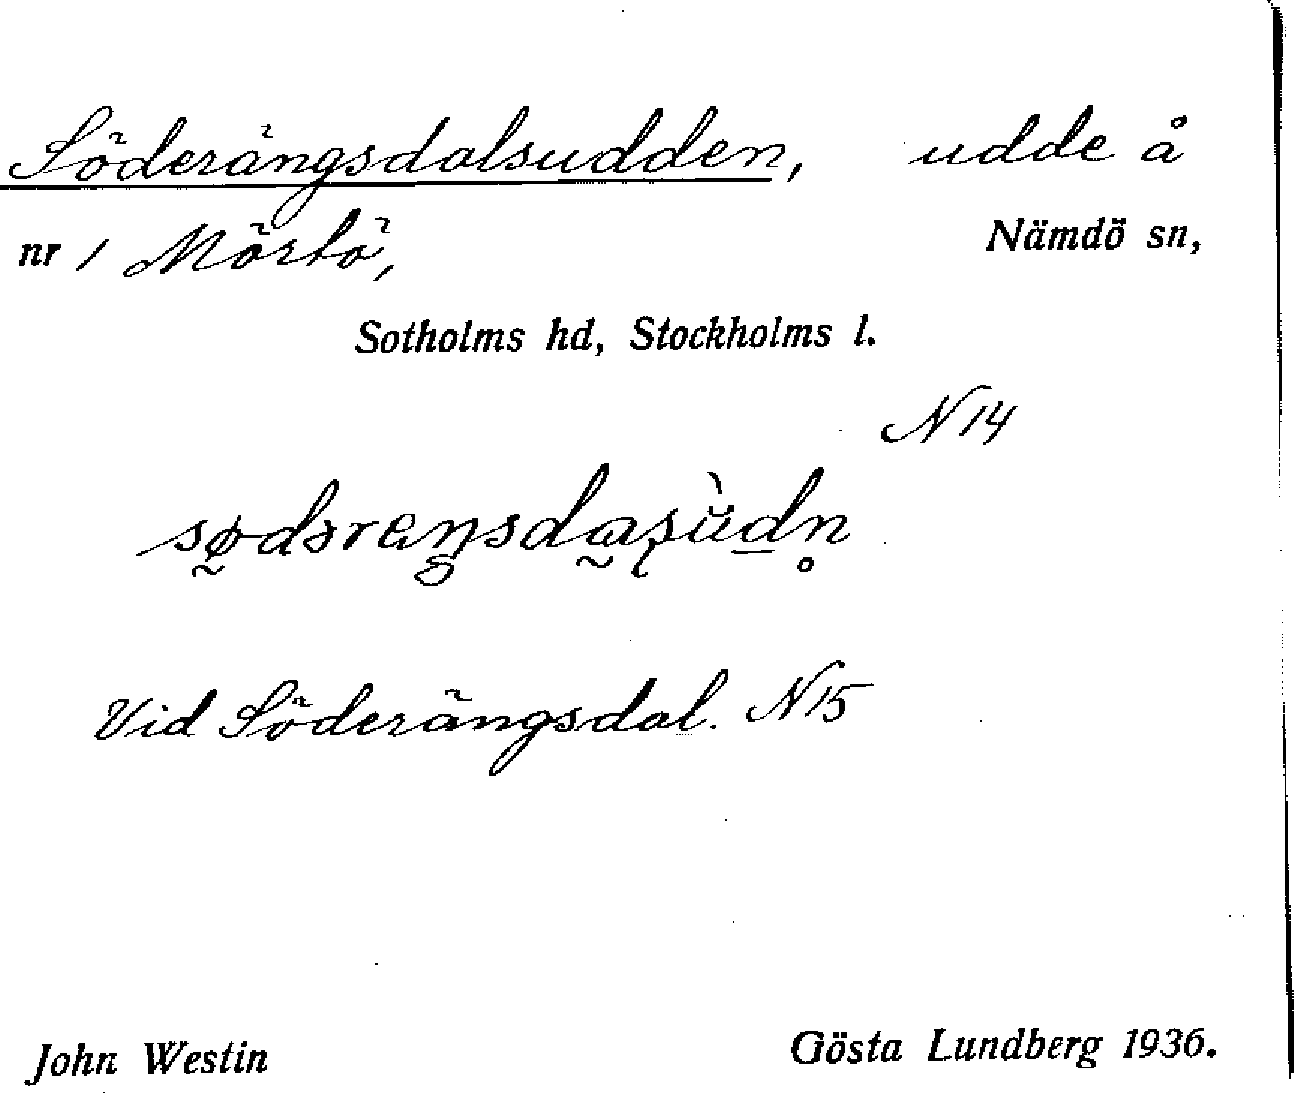 Söderängsdalsudden, udde å
nr 1 Mörtö, Nämdö sn,
Sotholms hd, Stockholms l.
N 14
Vid Söderängsdal. N 15
John Westin Gösta Lundberg 1936.